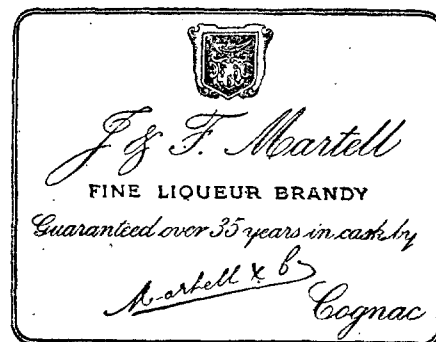 J & F. Martell
FINE LIQUEUR BRANDY
Guaranteed over 35 years in cask by
Martell & Co
Cognac